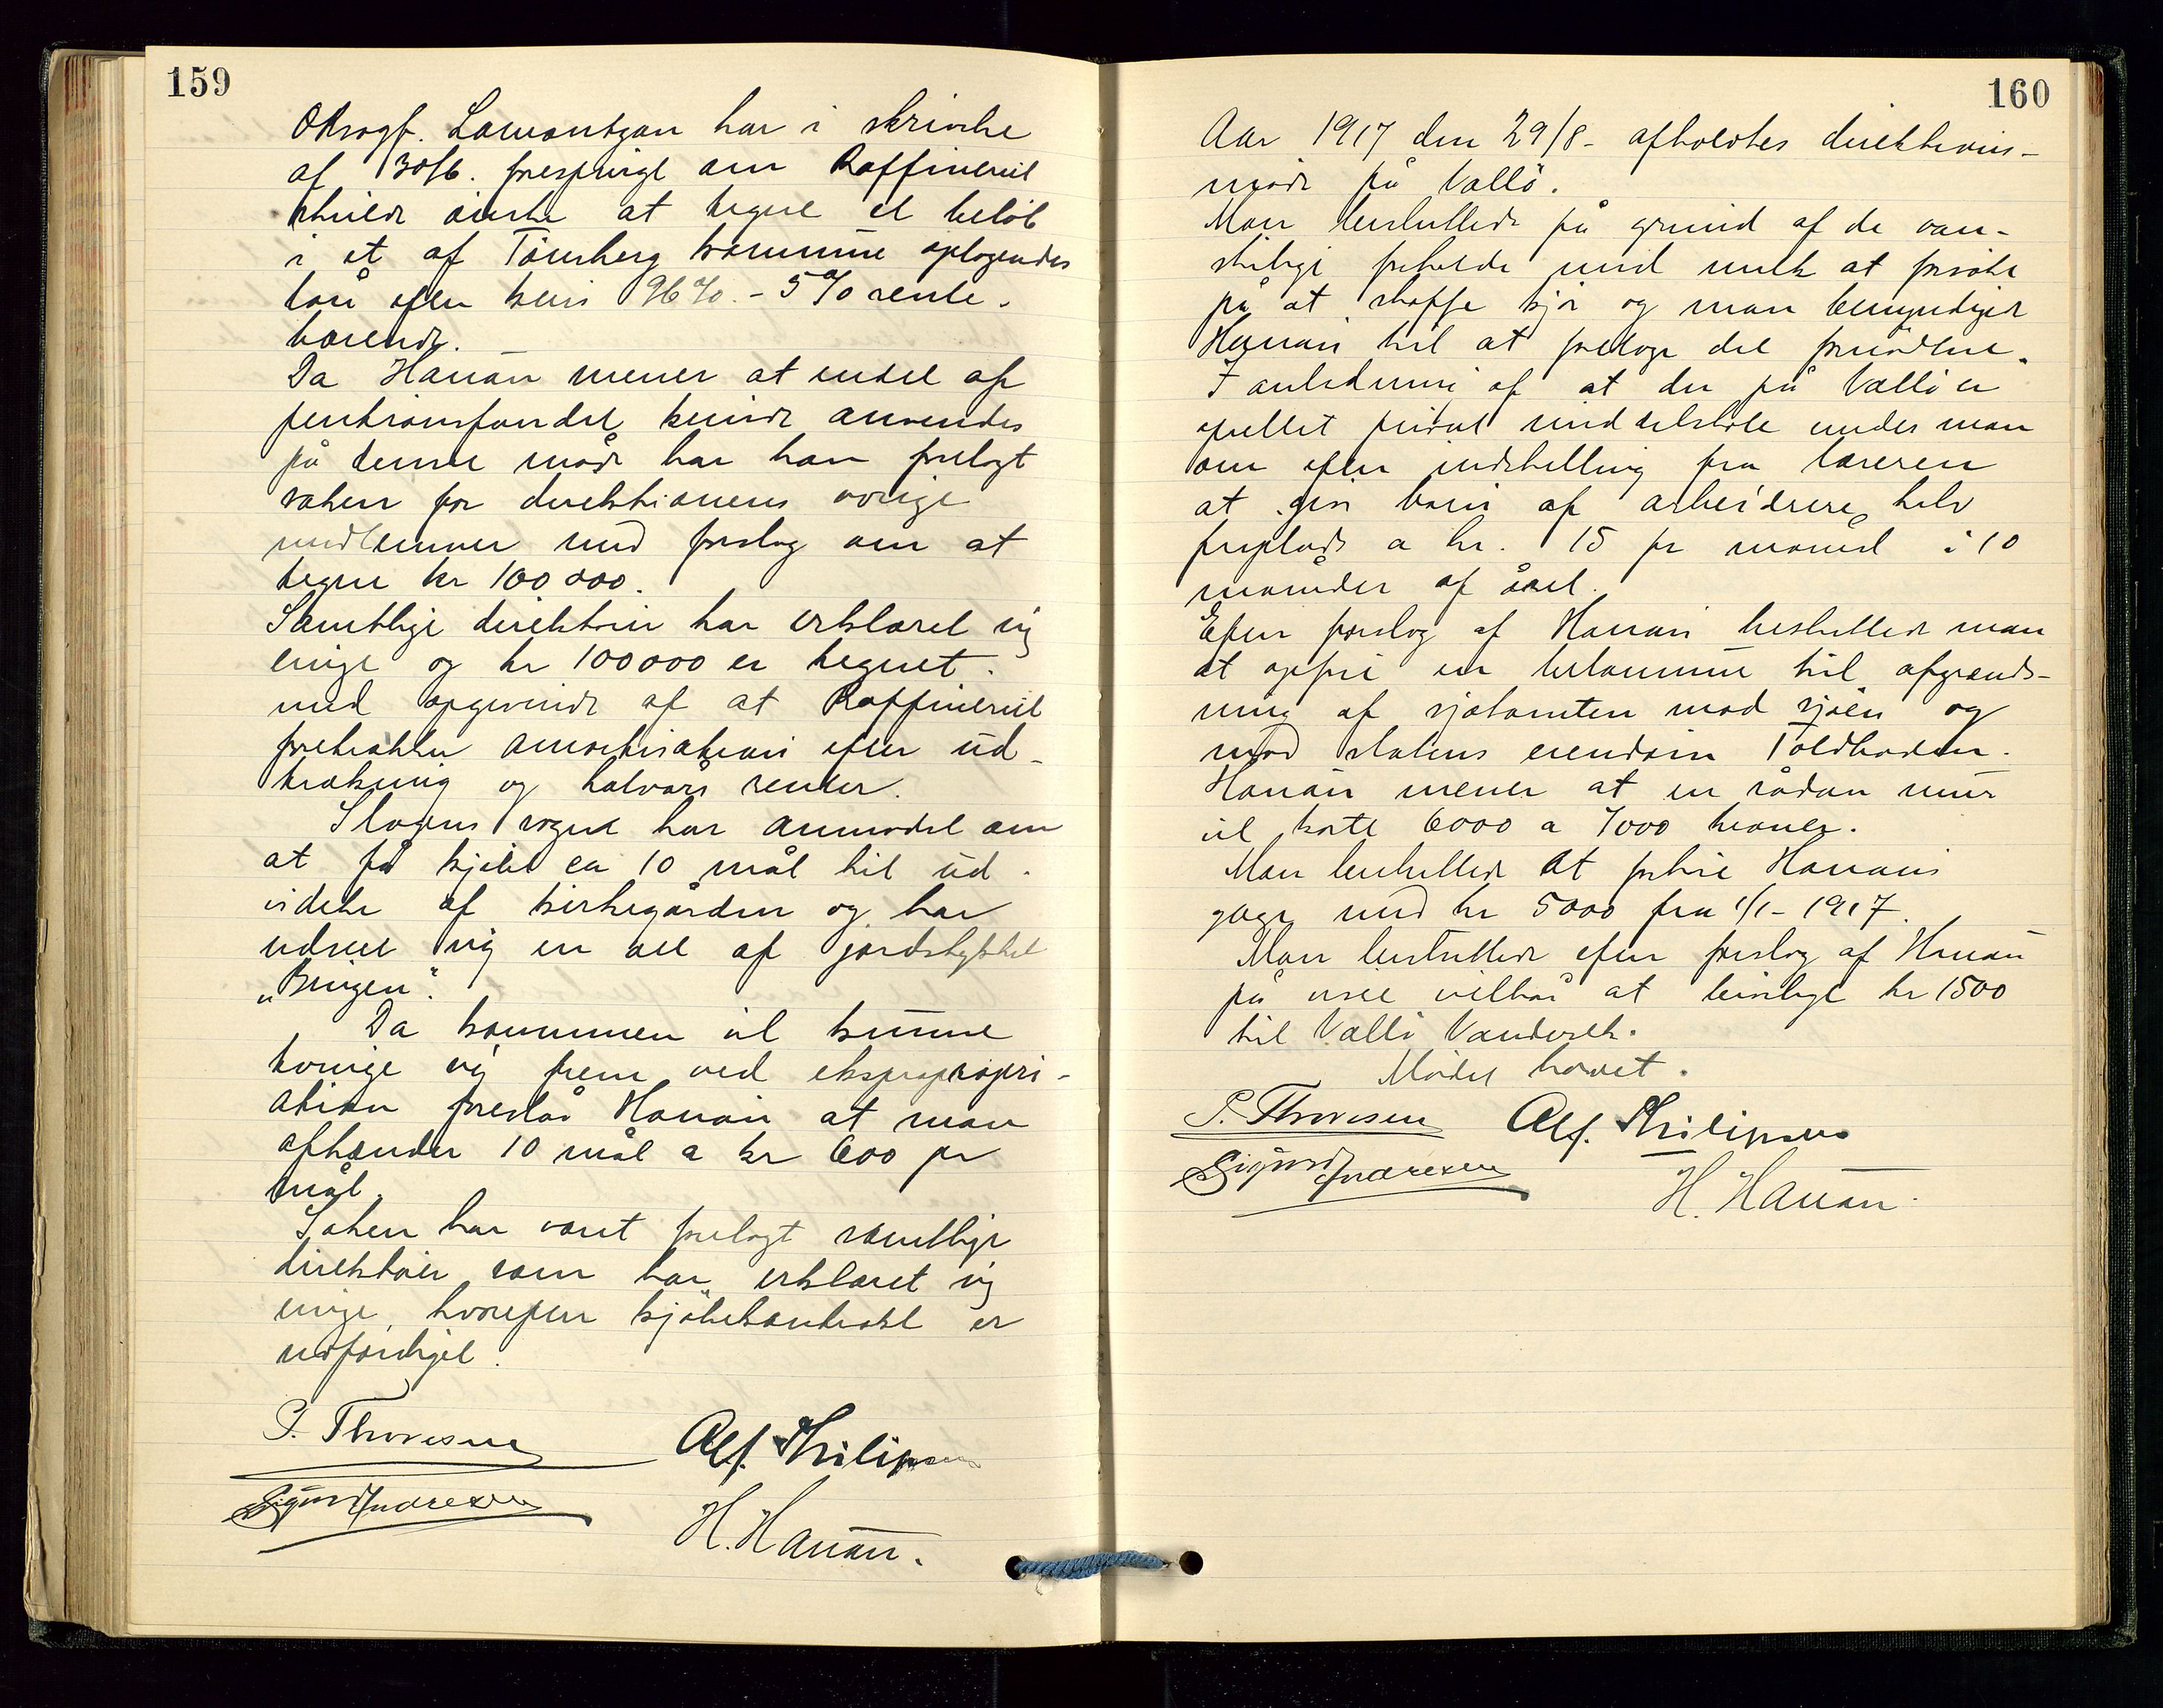 159
Orsagf. Lamontzan har i skrivelse
af 30/6. forespurgt om Raffineriet
skulde ønske at tegne et beløb
i et af Tønsberg kommune optagendes
lån efter kurs 96%. - 5% rente-
bærende.
Da Hanan mener at endel af
pensionsfondet kunde anvendes
på denne måde har han forelagt
saken for direktionens øvrige
medlemmer med forslag om at
tegne kr 100 000.
Samtlige direktører har erklæret sig
enige og kr 100000 er tegnet.
med opgivende af at Raffineriet
foretrækker amortisation efter ud-
trækning og halvårs renter.
Slagens sogn har anmodet om
at få kjøbt ca 10 mål til ud-
videlse af kirkegården og har
udseet sig en del af jordstykket
„Bingen".
Da kommunen vil kunne
tvinge sig frem ved ekspropropri-
ation foreslår Hanan at man
afhænder 10 mål a kr 600 pr
mål.
Saken har været forelagt samtlige
direktører som har erklæret sig
enige, hvorefter kjøbekontrakt er
udfærdiget.
S. Thoresen Alf. Philipsen
Sigurd Andresen
H. Hanan.
160
Aar 1917 den 29/8- afholdtes direktions-
møde på Vallö.
Man besluttede på grund af de van-
skelige forholde med melk at forsøke
på at skaffe kjør og man bemyndiger
Hanan til at foretage det fornødne.
I anledning af at der på Vallö er
oprettet privat middelskole enedes man
om efter indstilling fra læreren
at give børn af arbeidere, halv
friplads a kr. 15 pr måned i 10
måneder af året.
Efter forslag af Hanan besluttede man
at opføre en betonmur til afgrænds-
ning af sjøtomten mod sjøen og
mod statens eiendom Toldboden.
Hanan mener at en sådan mur
vil koste 6000 a 7000 kroner.
Man besluttede at forhøie Hanans
gage med kr 5000 fra 1/1-1917.
Man besluttede efter forslag af Hanan
på visse vilkår at bevilge kr 1500
til Vallö Vandverk.
Mødet hævet.
S. Thoresen Alf. Philipsen
Sigurd Andresen
H. Hanan.